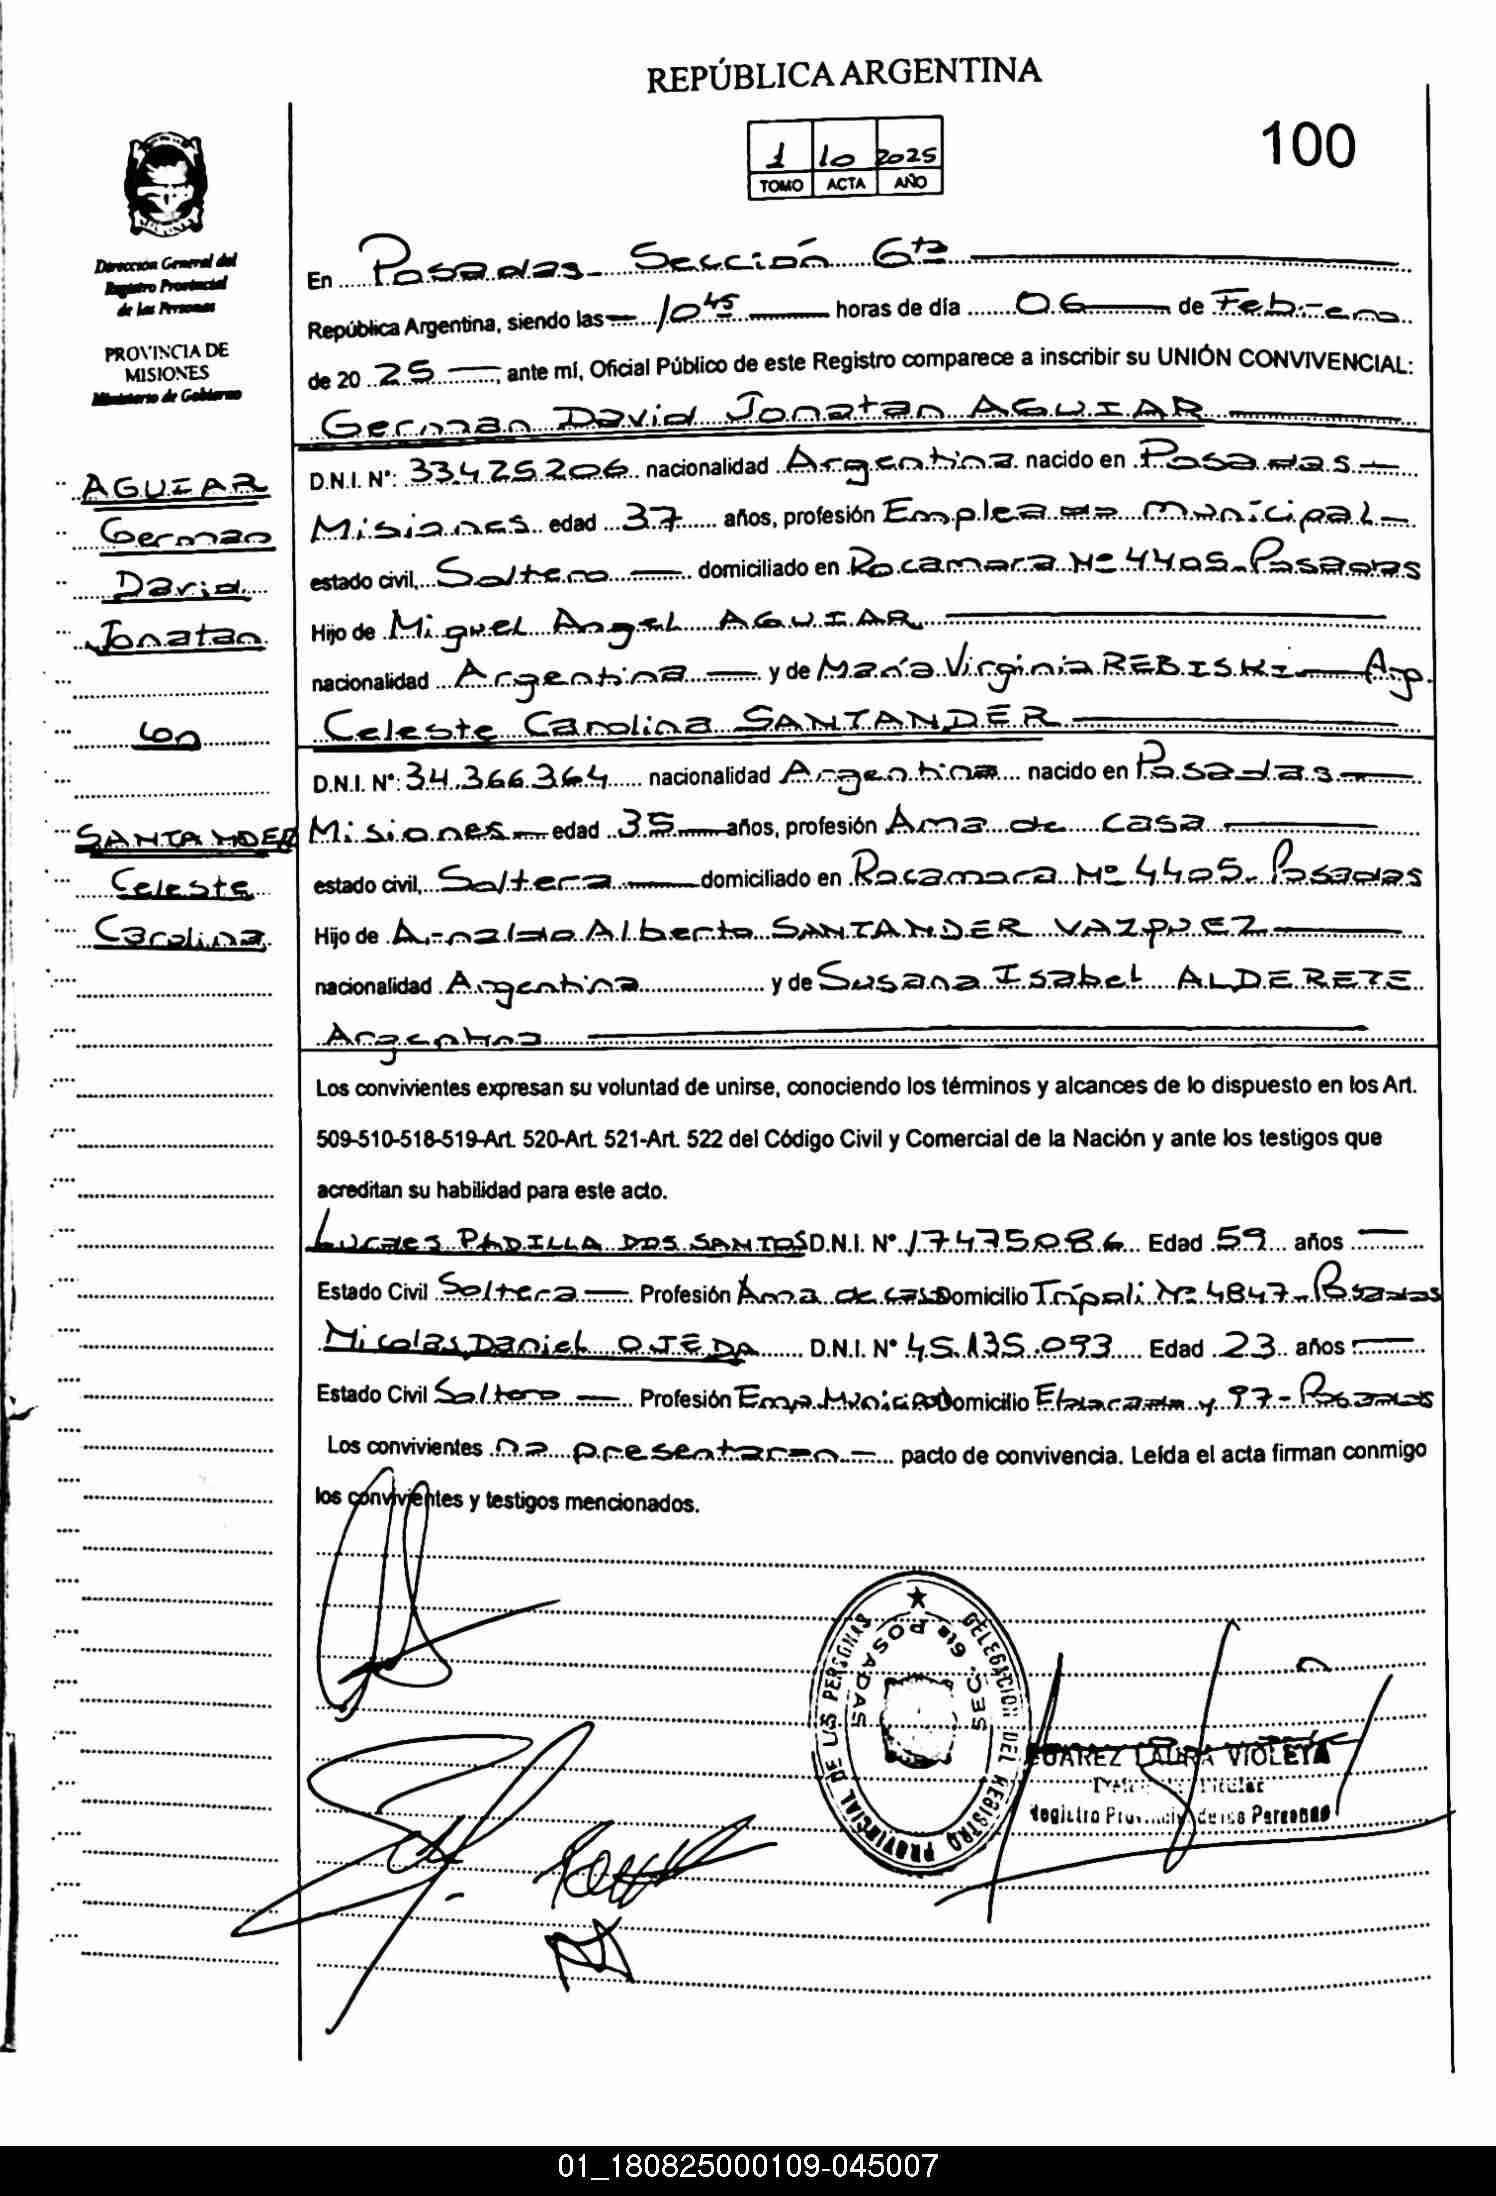 REPÚBLICA ARGENTINA
1 10 2025
TOMO ACTA AÑO
100
Dirección General del
Registro Provincial
de las Personas
PROVINCIA DE
MISIONES
Ministerio de Gobierno
AGUIAR
German
David
Jonatan
con
SANTANDER
Celeste
Carolina
En Posadas Sección 6ta
República Argentina, siendo las 10 45 horas de día 06 de Febrero
de 20 25, ante mí, Oficial Público de este Registro comparece a inscribir su UNIÓN CONVIVENCIAL:
German David Jonatan AGUIAR
D.N.I. N°: 33425206 nacionalidad Argentina nacido en Posadas
Misiones edad 37 años, profesión Empleado Municipal
estado civil, Soltero domiciliado en Rocamora Nº 4405 - Posadas
Hijo de Miguel Angel AGUIAR
nacionalidad Argentina y de María Virginia REBISKI Arg.
Celeste Carolina SANTANDER
D.N.I. N°: 34.366.364 nacionalidad Argentina nacido en Posadas
Misiones edad 35 años, profesión Ama de casa
estado civil, Soltera domiciliado en Rocamora Nº 4405 - Posadas
Hijo de Arnaldo Alberto SANTANDER VAZQUEZ
nacionalidad Argentina y de Susana Isabel ALDERETE
Argentina
Los convivientes expresan su voluntad de unirse, conociendo los términos y alcances de lo dispuesto en los Art.
509-510-518-519-Art. 520-Art. 521-Art. 522 del Código Civil y Comercial de la Nación y ante los testigos que
acreditan su habilidad para este acto.
PADILLA DOS SANTOS D.N.I. N° 17475086 Edad 59 años
Estado Civil Soltera Profesión Ama de casa Domicilio Trípoli Nº 4847 - Posadas
Nicolas Daniel OJEDA D.N.I. N° 45.135.093 Edad 23 años
Estado Civil Soltero Profesión Emp. Municip Domicilio y 97 - Posadas
Los convivientes no presentaron pacto de convivencia. Leída el acta firman conmigo
los convivientes y testigos mencionados.
DELEGACION DEL REGISTRO PROVINCIAL DE LAS PERSONAS
SEC. 6ta POSADAS
SUAREZ LAURA VIOLETA
Titular
Registro Provincial de las Personas
01_180825000109-045007